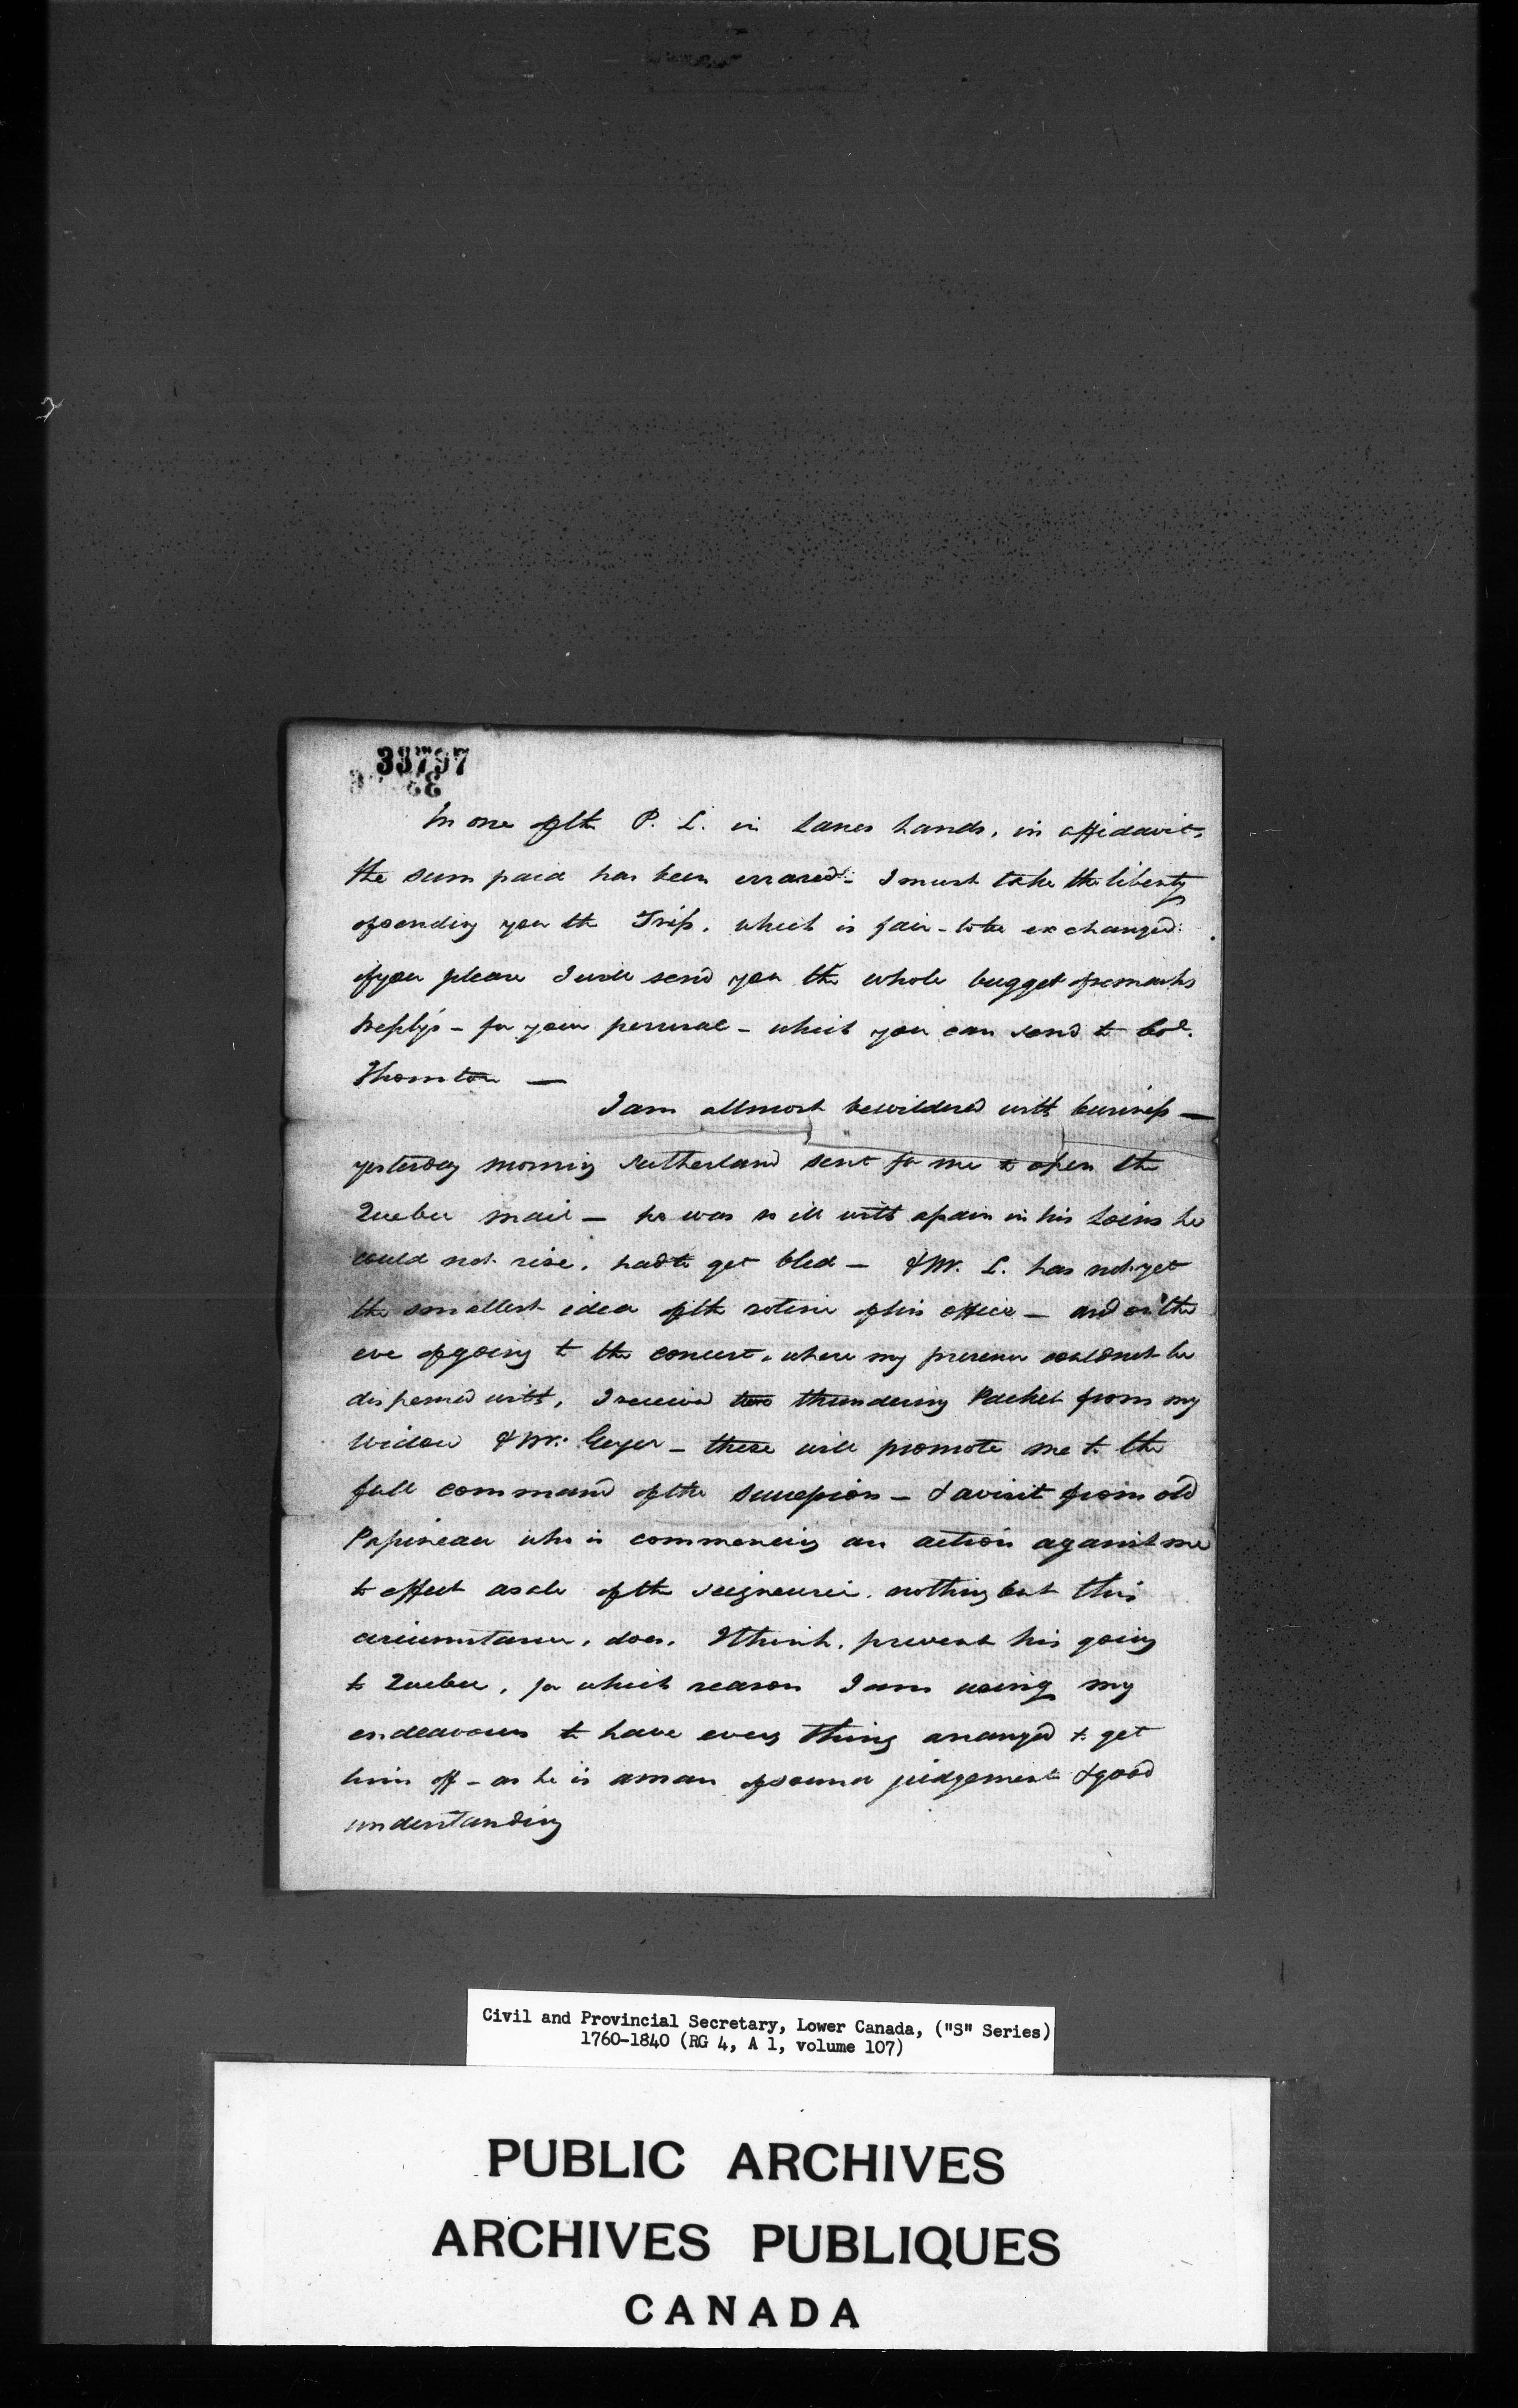 33797
In one of the P. L. in Lanes hands, in affidavit,
the sum paid has been erased - I must take the liberty
of sending you the Trip. which is fair - to be exchanged.
if you please I will send you the whole bugget of remarks
& replys - for your perusal - which you can send to Col.
Thornton —
I am allmost bewildered with business —
yesterday morning Sutherland sent for me to open the
Quebec mail — he was so ill with a pain in his Loins he
could not rise, had to get bled — & Mr. L. has not yet
the smallest idea of the rotine of his office — and on the
eve of going to the concert, where my presence could not be
dispensed with, I received two thundering Packet from my
Widow & Mr. Geyer - these will promote me to the
full command of the succession - & a visit from old
Papineau who is commencing an action against me
to effect a sale of the seigneurie. nothing but this
circumstance, does, I think, prevent his going
to Quebec, for which reason I am using my
endeavours to have every thing arranged to get
him off - as he is a man of sound judgement & good
understanding
Civil and Provincial Secretary, Lower Canada, ("S" Series)
1760-1840 (RG 4, A 1, volume 107)
PUBLIC ARCHIVES
ARCHIVES PUBLIQUES
CANADA